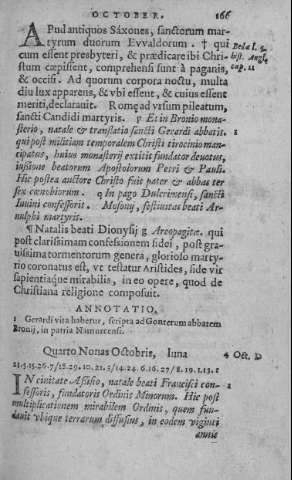 OCTOBER. 166
APud antiquos Saxones, sanctorum mar-
tyrum duorum Evvaldorum. † qui
cum essent presbyteri, & prædicare ibi Chri-
stum cœpissent, comprehensi sunt à paganis,
& occisi. Ad quorum corpora noctu, multa
diu lux apparens, & vbi essent, & cuius essent
meriti, declarauit. Romę ad vrsum pileatum,
Sancti Candidi martyris. Et in Bronio mona-
sterio, natale & translatio sancti Gerardi abbatis.
qui post militiam temporalem Christi tirocinio man-
cipatus, huius monasterij extitit fundator deuotus,
iussione beatorum Apostolorum Petri & Pauli.
Hic postea auctore Christo fuit pater & abbas ter
sex cœnobiorum. In pago Dulcrinensi, sancti
Iuuini confessoris. Mosomij, festiuitas beati Ar-
nulphi martyris.
¶ Natalis beati Dionysij Areopagitæ. qui
post clarissimam confessionem fidei, post gra-
uissima tormentorum genera, glorioso marty-
rio coronatus est, vt testatur Aristides, fide vir
sapientiaque mirabilis, in eo opere, quod de
Christiana religione composuit.
Beda l. 5.
hist. Angl.
cap. 11
ANNOTATIO.
Gerardi vita habetur, scripta ad Gonterum abbatem
Bronij, in patria Namurcensi.
Quarto Nonas Octobris, luna 4 Oct. D
IN ciuitate Asisio, natale beati Francisci con-
fessoris, fundatoris Ordinis Minorum. Hic post
multiplicationem mirabilem Ordinis, quem fun-
dauit vbique terrarum diffusius, in eodem viginti
annis